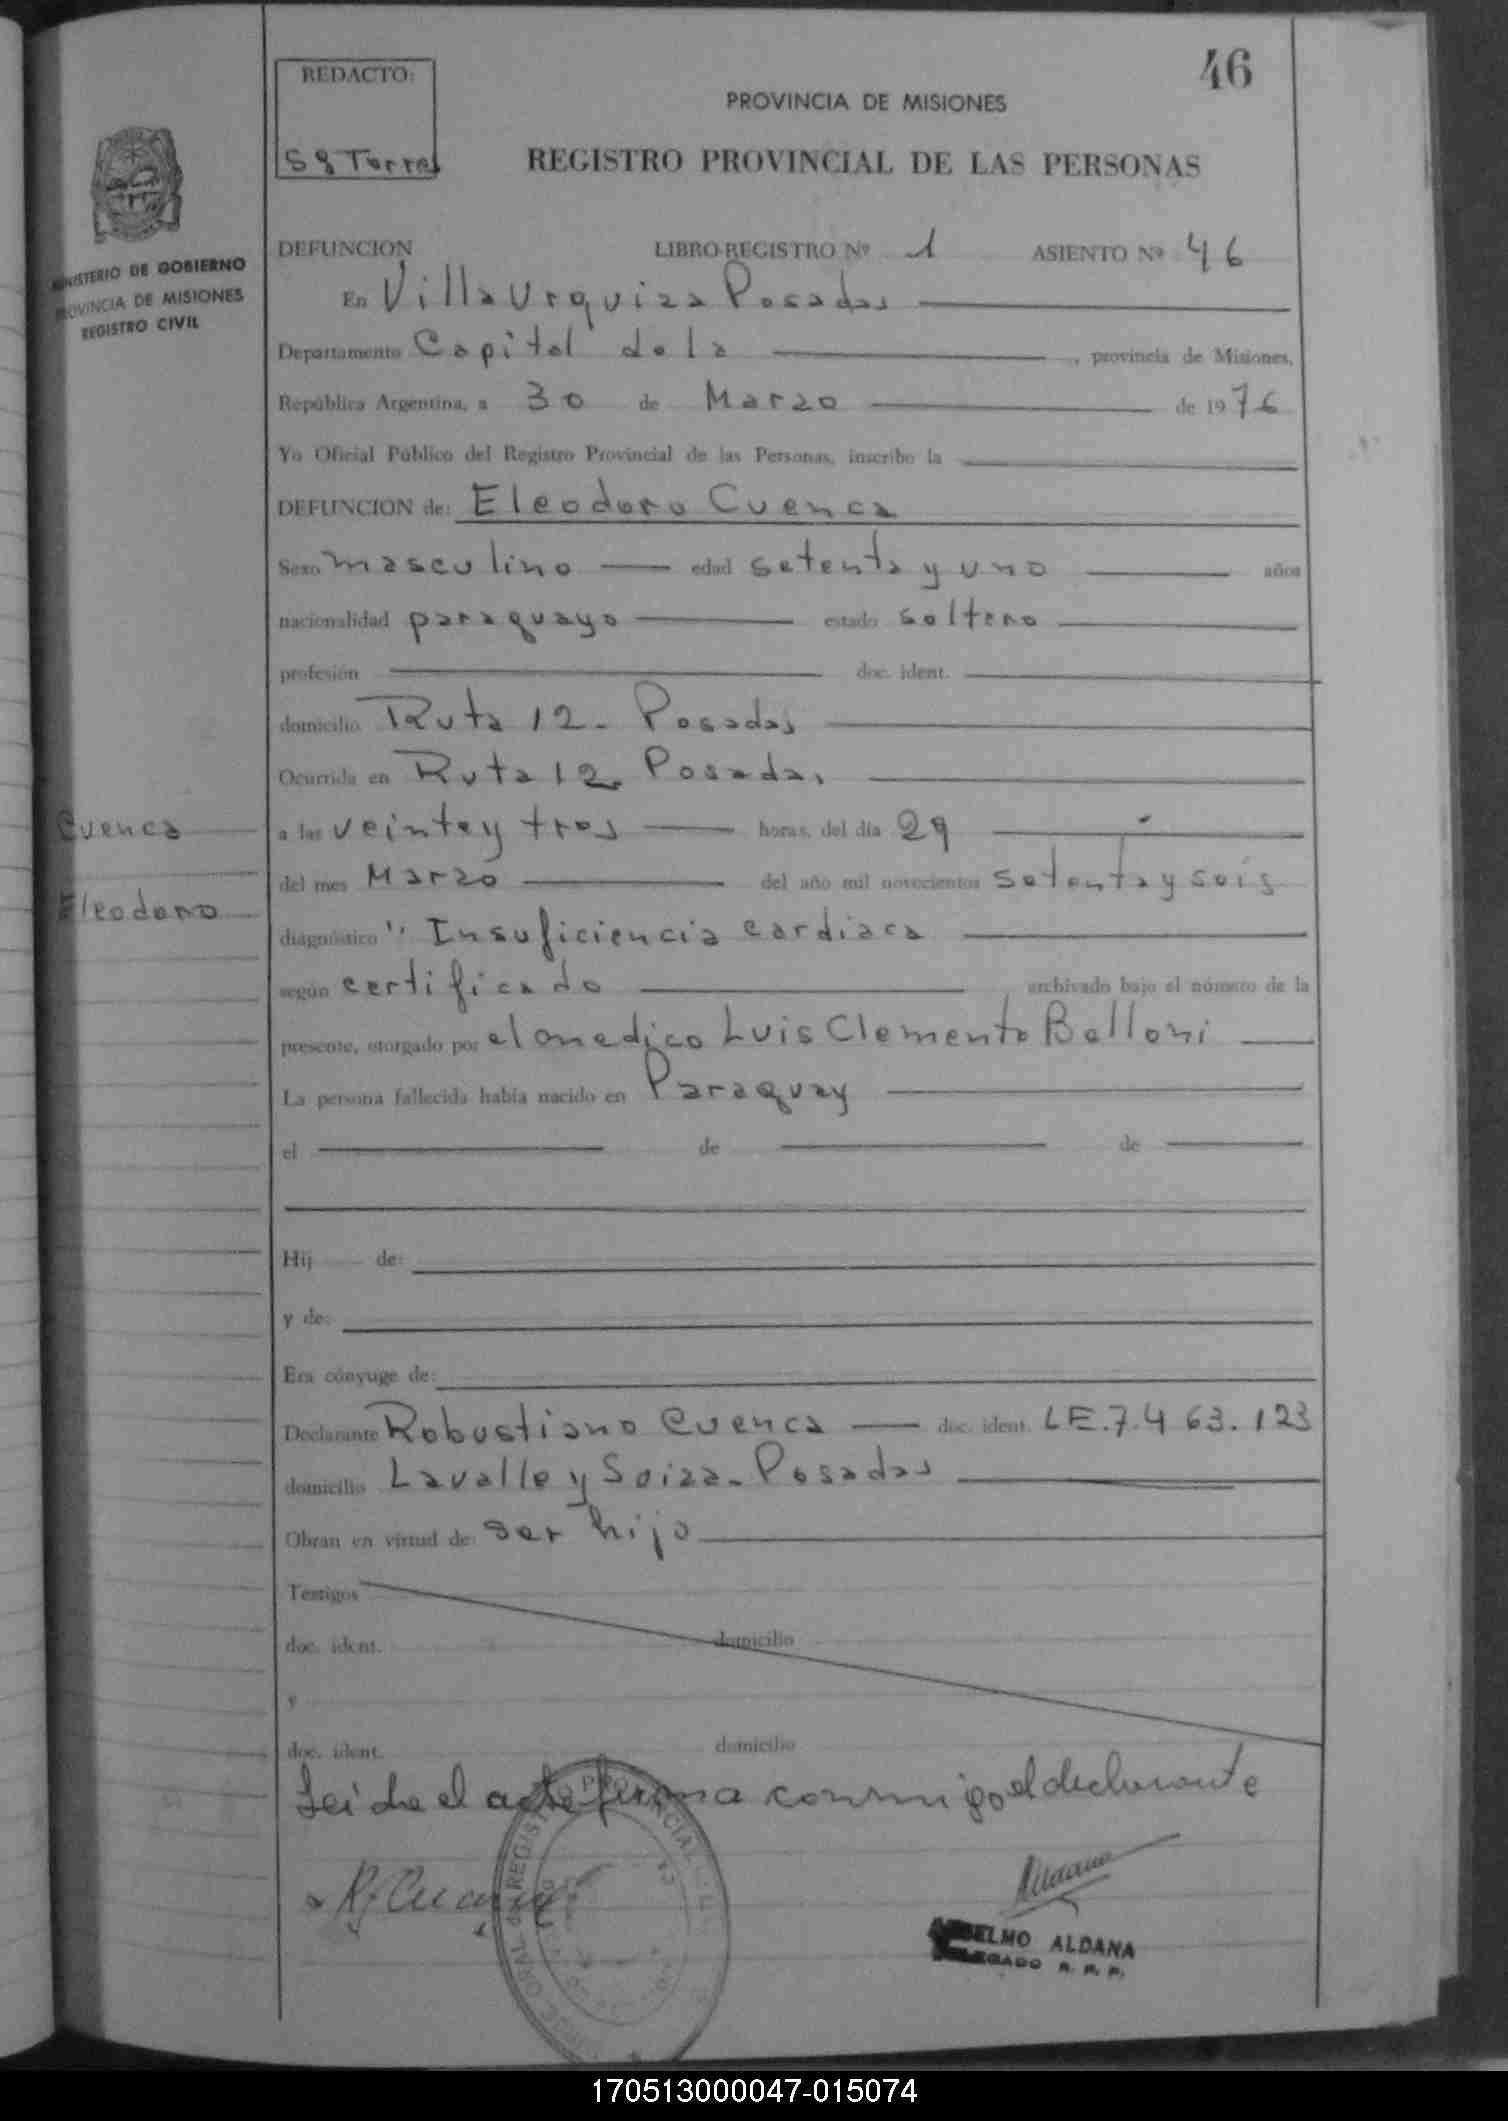 46
REDACTO:
S g Torres
PROVINCIA DE MISIONES
REGISTRO PROVINCIAL DE LAS PERSONAS
MINISTERIO DE GOBIERNO
PROVINCIA DE MISIONES
REGISTRO CIVIL
DEFUNCION LIBRO-REGISTRO Nº 1 ASIENTO Nº 46
En Villa Urquiza Posadas
Departamento Capital de la , provincia de Misiones,
República Argentina, a 30 de Marzo de 1976
Yo Oficial Público del Registro Provincial de las Personas, inscribo la
DEFUNCION de: Eleodoro Cuenca
Sexo masculino edad setenta y uno años
nacionalidad paraguayo estado soltero
profesión doc. ident.
domicilio Ruta 12 - Posadas
Ocurrida en Ruta 12. Posadas
Cuenca
a las veinte y tres horas, del día 29
del mes Marzo del año mil novecientos setenta y seis
Eleodoro
diagnóstico " Insuficiencia cardiaca
según certificado archivado bajo el número de la
presente, otorgado por el medico Luis Clemente Belloni
La persona fallecida había nacido en Paraguay
el de de
Hij de:
y de:
Era cónyuge de:
Declarante Robustiano Cuenca doc. ident. LE.7.463.123
domicilio Lavalle y Soiza - Posadas
Obran en virtud de ser hijo
Testigos
doc. ident. domicilio
y
doc. ident. domicilio
Leida el acta firma conmigo el declarante
R. Cuenca
Aldana
ANSELMO ALDANA
DELEGADO R. P. P.
170513000047-015074